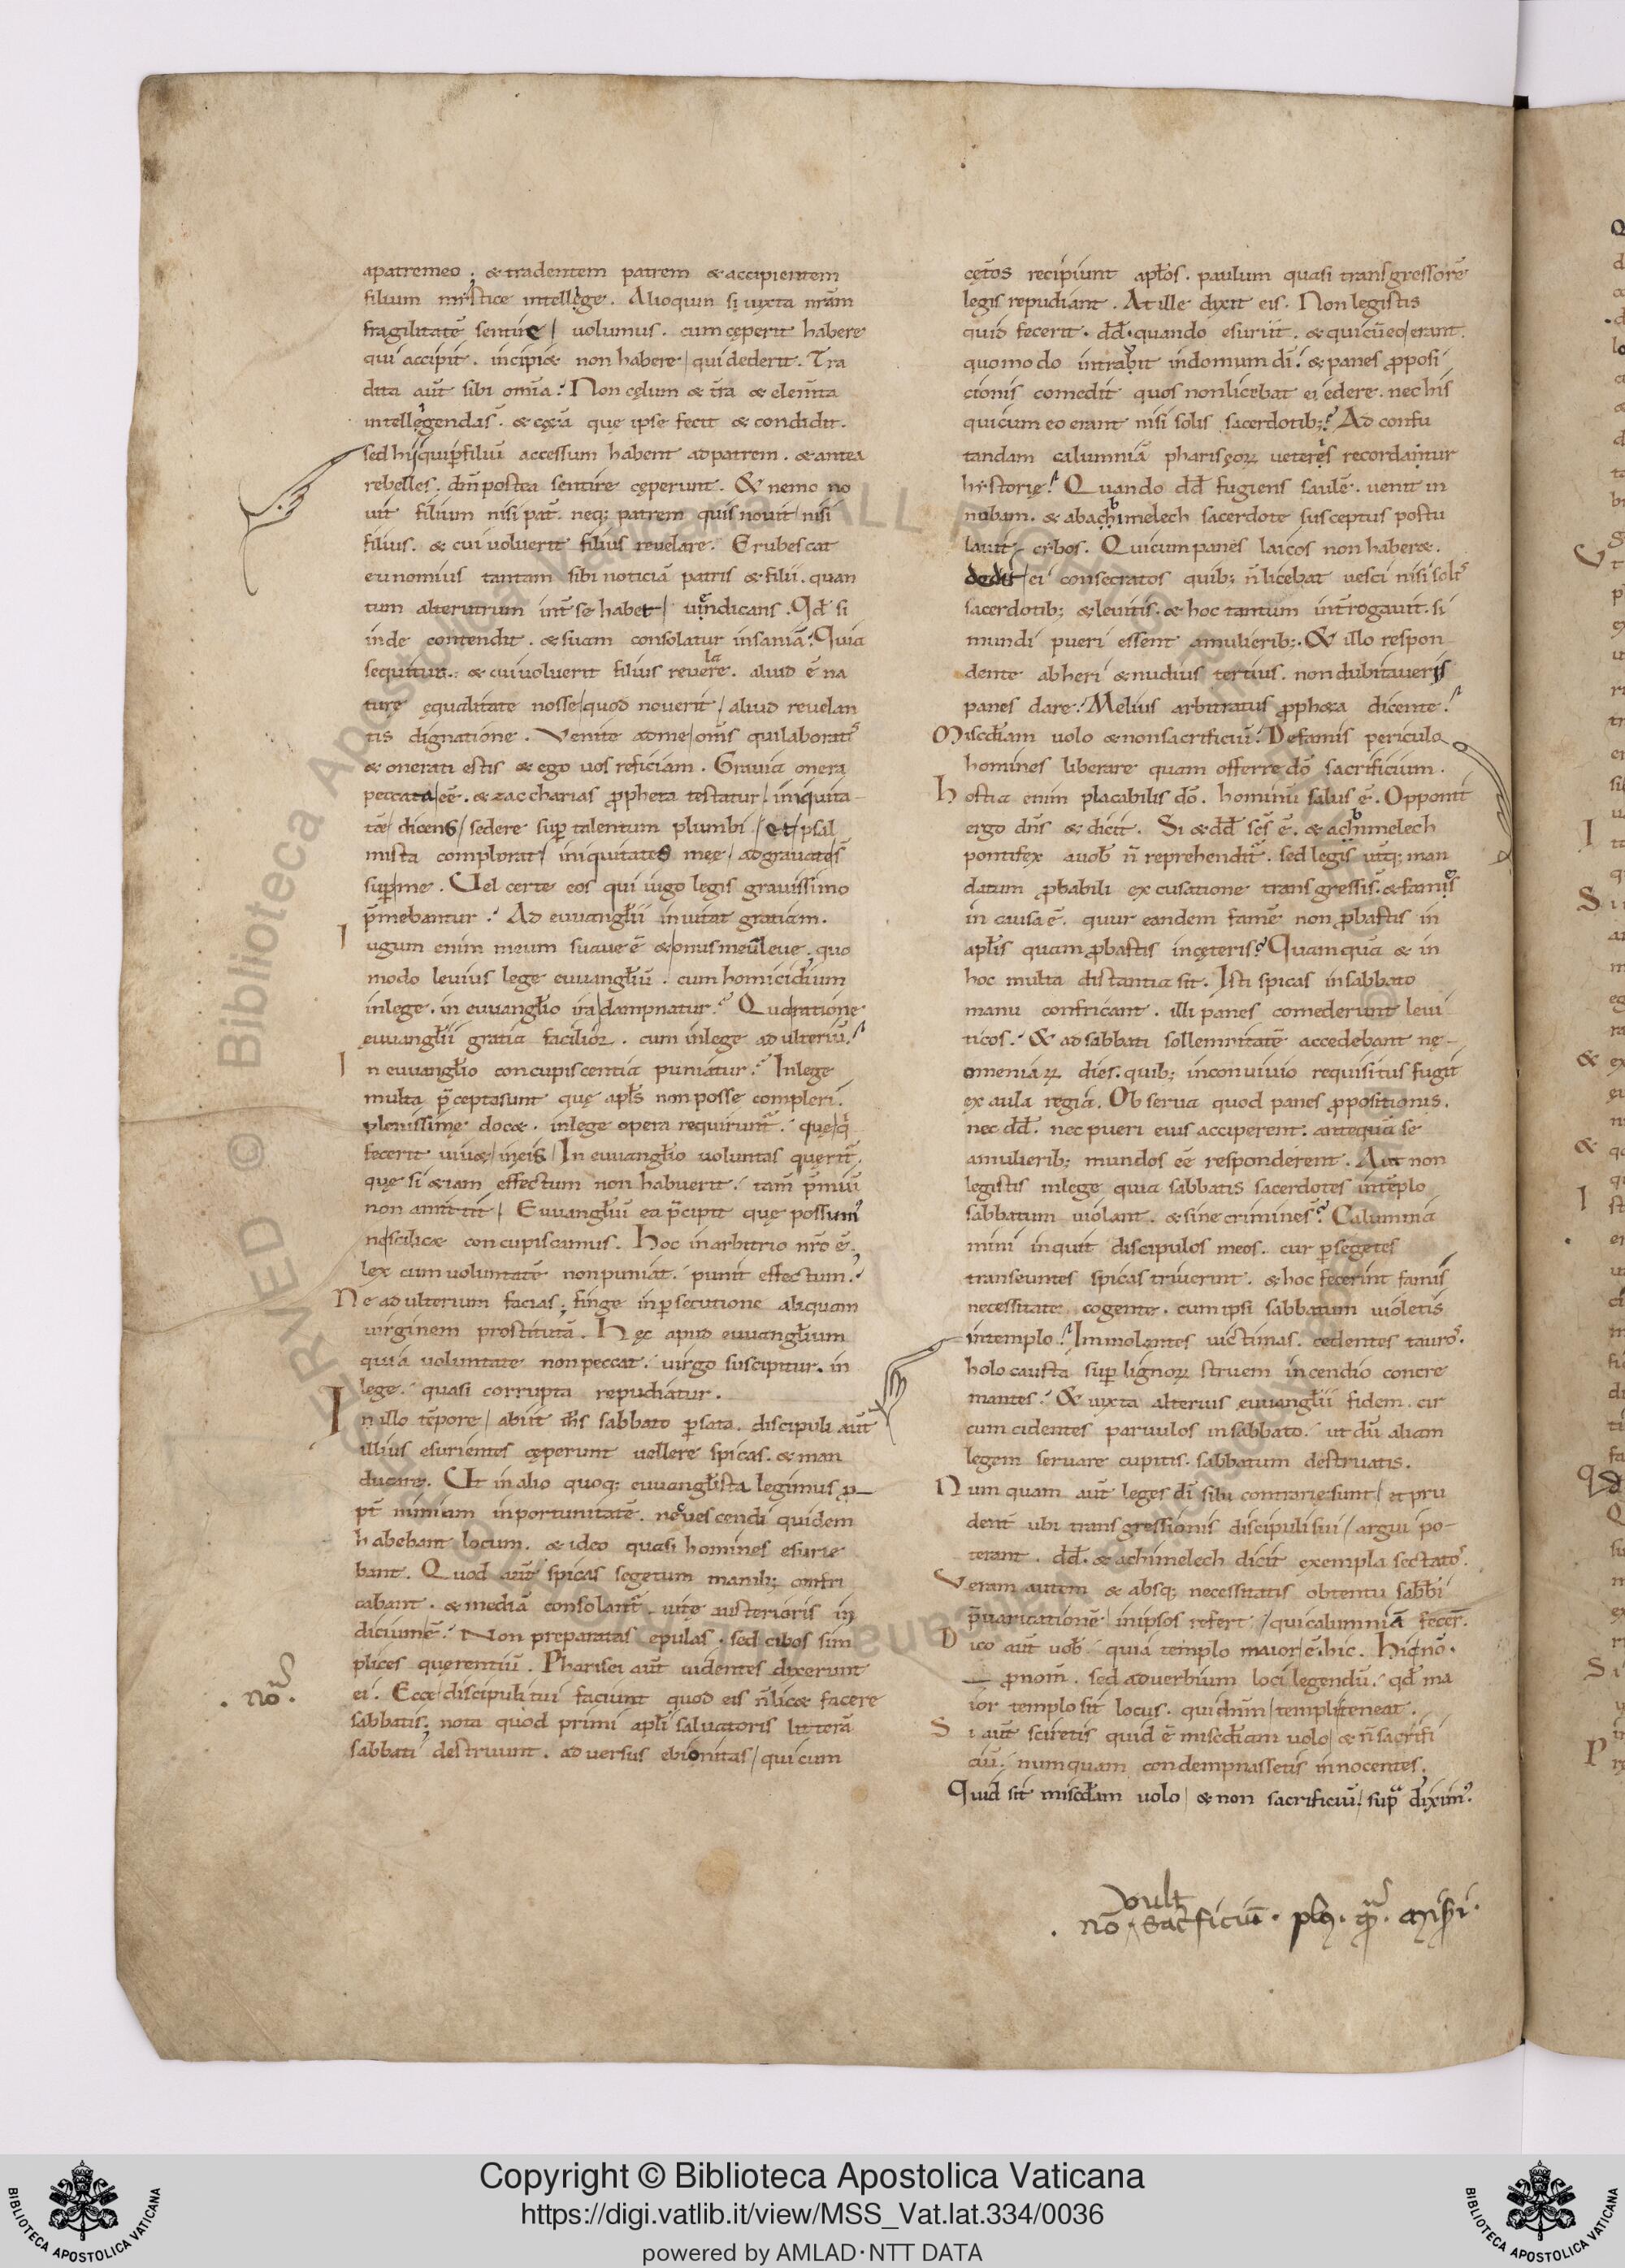 apatremeo; & tradentem patrem & accipientem
filium mistice intellege. Alioquin si iuxta nr̄am
fragilitatē sentire uolumus. cum cęperit habere
qui accipit. incipi& non habere qui dederit. Tra
dita aut̄ sibi omīa. Non cęlum & t̄ra & elem̄ta
intellegenda s̄. & cę&a quę ipse fecit & condidit.
sed hi qui ꝑ filiū accessum habent ad patrem. & antea
rebelles. dm̄ postea sentire cęperunt. & nemo no
uit filium nisi pat̄. neq; patrem quis nouit nisi
filius. & cui uoluerit filius reuelare. Erubescat
eunomius tantam sibi noticiā patris & filii. quan
tum alterutrum int̄ se habet uendicans. Qđ si
inde contendit. & suam consolatur insaniā. Quia
sequitur: & cui uoluerit filius reuelare. aliud ē na
turę ęqualitate nosse quod nouerit aliud reuelan
tis dignatione. Venite adme om̄s qui laboratis
& onerati estis & ego uos reficiam. Grauia onera
peccata eē. & zaccharias ꝓpheta testatur iniquita
tē dicens sedere suꝑ talentum plumbi. et psal
mista complorat iniquitates meę adgrauate s̄
suꝑ me. Vel certe eos qui iugo legis grauissimo
p̄mebantur. Ad euuanglii inuitat gratiam.
Iugum enim meum suaue ē & onus meū leue. quo
modo leuius lege euuangliū. cum homicidium
in lege. in euuanglio ira dampnatur. Qua ratione
euuanglii gratia facilior. cum in lege adulteriū.
In euuanglio concupiscentia puniatur. In lege
multa p̄cepta sunt quę apl̄s non posse compleri.
plenissime doc&. in lege opera requirunt̄. quę q
fecerit uiu& in eis. In euuanglio uoluntas querit̄.
quę si &iam effectum non habuerit. tam̄ p̄miū
non amittit. Euuangliū ea p̄cipit quę possum
ne scilic& concupiscamus. hoc in arbitrio nr̄o ē.
lex cum uoluntatē non puniat. punit effectum.
Ne adulterium facias; finge in ꝑsecutione aliquam
uirginem prostitutā. Hęc apud euuanglium
quia uoluntate non peccat. uirgo suscipitur. in
lege. quasi corrupta repudiatur.
In illo tēpore abiit ih̄s sabbato ꝑ sata. discipuli aut̄
illius esurientes cęperunt uellere spicas. & man
ducare. Ut in alio quoq; euuanglista legimus ꝓ
pt̄ nimiam inportunitatē. nec uescendi quidem
habebant locum. & ideo quasi homines esurie
bant. Quod aut̄ spicas segetum manib; confri
cabant. & mediā consolant̄. uitę austerioris in
dicium ē. Non preparatas epulas. sed cibos sim
plices querentiū. Pharisei aut̄ uidentes dixerunt
ei. Ecce discipuli tui faciunt quod eis n̄ lic& facere
sabbatis; nota quod primi apl̄i saluatoris litterā
sabbati destruunt. aduersus ebionitas qui cum
. no.
cęt̄os recipiunt apl̄os. paulum quasi transgressorē
legis repudiant. At ille dixit eis. Non legistis
quid fecerit. dd̄. quando esuriit. & qui cū eo erant.
quomodo intrabit in domum dī. & panes ꝓposi
cionis comedit quos non licebat ei edere. nec his
qui cum eo erant nisi solis sacerdotib;. Ad confu
tandam calumniā phariseoꝝ ueteris recordantur
historię. Quando dd̄ fugiens saulē. uenit in
nobam. & ab achimelech sacerdote susceptus postu
lauit cibos. Qui cum panes laicos non haber&.
dedit ei consecratos quib; n̄ licebat uesci nisi solis
sacerdotib; & leuitis. & hoc tantum int̄rogauit. si
mundi pueri essent a mulierib;. & illo respon
dente ab heri & nudius tertius. non dubitauerit
panes dare. Melius arbitratus ꝓph&a dicente.
Misc̄diam uolo & non sacrificiū. De famis periculo
homines liberare quam offerre dō sacrificium.
hostia enim placabilis dō. hominū salus ē. Opponit
ergo dn̄s & dicit. Si & dd̄ sc̄s ē. & achimelech
pontifex a uob̄ n̄ reprehendit̄. sed legis utq; man
datum ꝓbabili excusatione transgressi s̄. & famis
in causa ē. quur eandem famē non ꝓbastis in
apl̄is quam ꝓbastis in cęteris. Quamquā & in
hoc multa distantia sit. Isti spicas in sabbato
manu confricant. illi panes comederunt leui
ticos. & ad sabbati sollemnitatē accedebant ne
omeniaꝝ dies. quib; in conuiuio requisitus fugit
ex aula regia. Obserua quod panes ꝓpositionis.
nec dd̄. nec pueri eius acciperent. antequā se
a mulierib; mundos eē responderent. Aut non
legistis in lege quia sabbatis sacerdotes in tēplo
sabbatum uiolant. & sine crimine s̄. Calumnia
mini inquit discipulos meos. cur ꝑ segetes
transeuntes spicas triuerint. & hoc fecerint famis
necessitate cogente. cum ipsi sabbatum uioletis
in templo. Immolantes uictimas. cedentes tauros.
holocausta suꝑ lignoꝝ struem incendio concre
mantes. & iuxta alterius euuanglii fidem. cir
cumcidentes paruulos in sabbato. ut dū aliam
legem seruare cupitis. sabbatum destruatis.
Numquam aut̄ leges dī sibi contrarię sunt et pru
dent̄ ubi transgressionis discipuli sui argui po
terant. dd̄. & achimelech dicit exempla sectatos.
Veram autem & absq; necessitatis obtentu sabb̄i
p̄uaricationē in ipsos refert qui calumniā fecer̄.
Dico aut̄ uob̄ quia templo maior ē hic. Hic nō.
ꝓnom̄. sed aduerbium loci legendū. qđ ma
ior templo sit locus. qui dn̄m templi teneat.
Si aut̄ sciretis quid ē misc̄diam uolo & n̄ sacrifi
ciū. numquam condempnassetis innocentes.
Quid sit misc̄dam uolo & non sacrificiū. supͣ diximꝰ.
uult
. nō sacͥficiū.
Copyright © Biblioteca Apostolica Vaticana
https://digi.vatlib.it/view/MSS_Vat.lat.334/0036
powered by AMLAD·NTT DATA
BIBLIOTECA APOSTOLICA VATICANA
BIBLIOTECA APOSTOLICA VATICANA